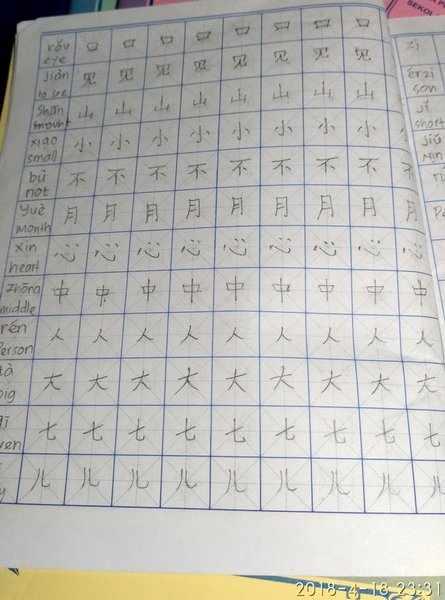 kǒu 口 口 口 口 口 口 口 口
eye
jiàn 见 见 见 见 见 见 见 见
to see
shān 山 山 山 山 山 山 山 山
mount
xiǎo 小 小 小 小 小 小 小 小
small
bù 不 不 不 不 不 不 不 不 不
not
yuè 月 月 月 月 月 月 月 月 月
month
xīn 心 心 心 心 心 心 心 心 心
heart
zhōng 中 中 中 中 中 中 中 中 中
middle
rén 人 人 人 人 人 人 人 人 人
person
大 大 大 大 大 大 大 大 大
七 七 七 七 七 七 七 七 七
儿 儿 儿 儿 儿 儿 儿 儿 儿
érzi
son
short
SEKOL
2018-4-18 23:31